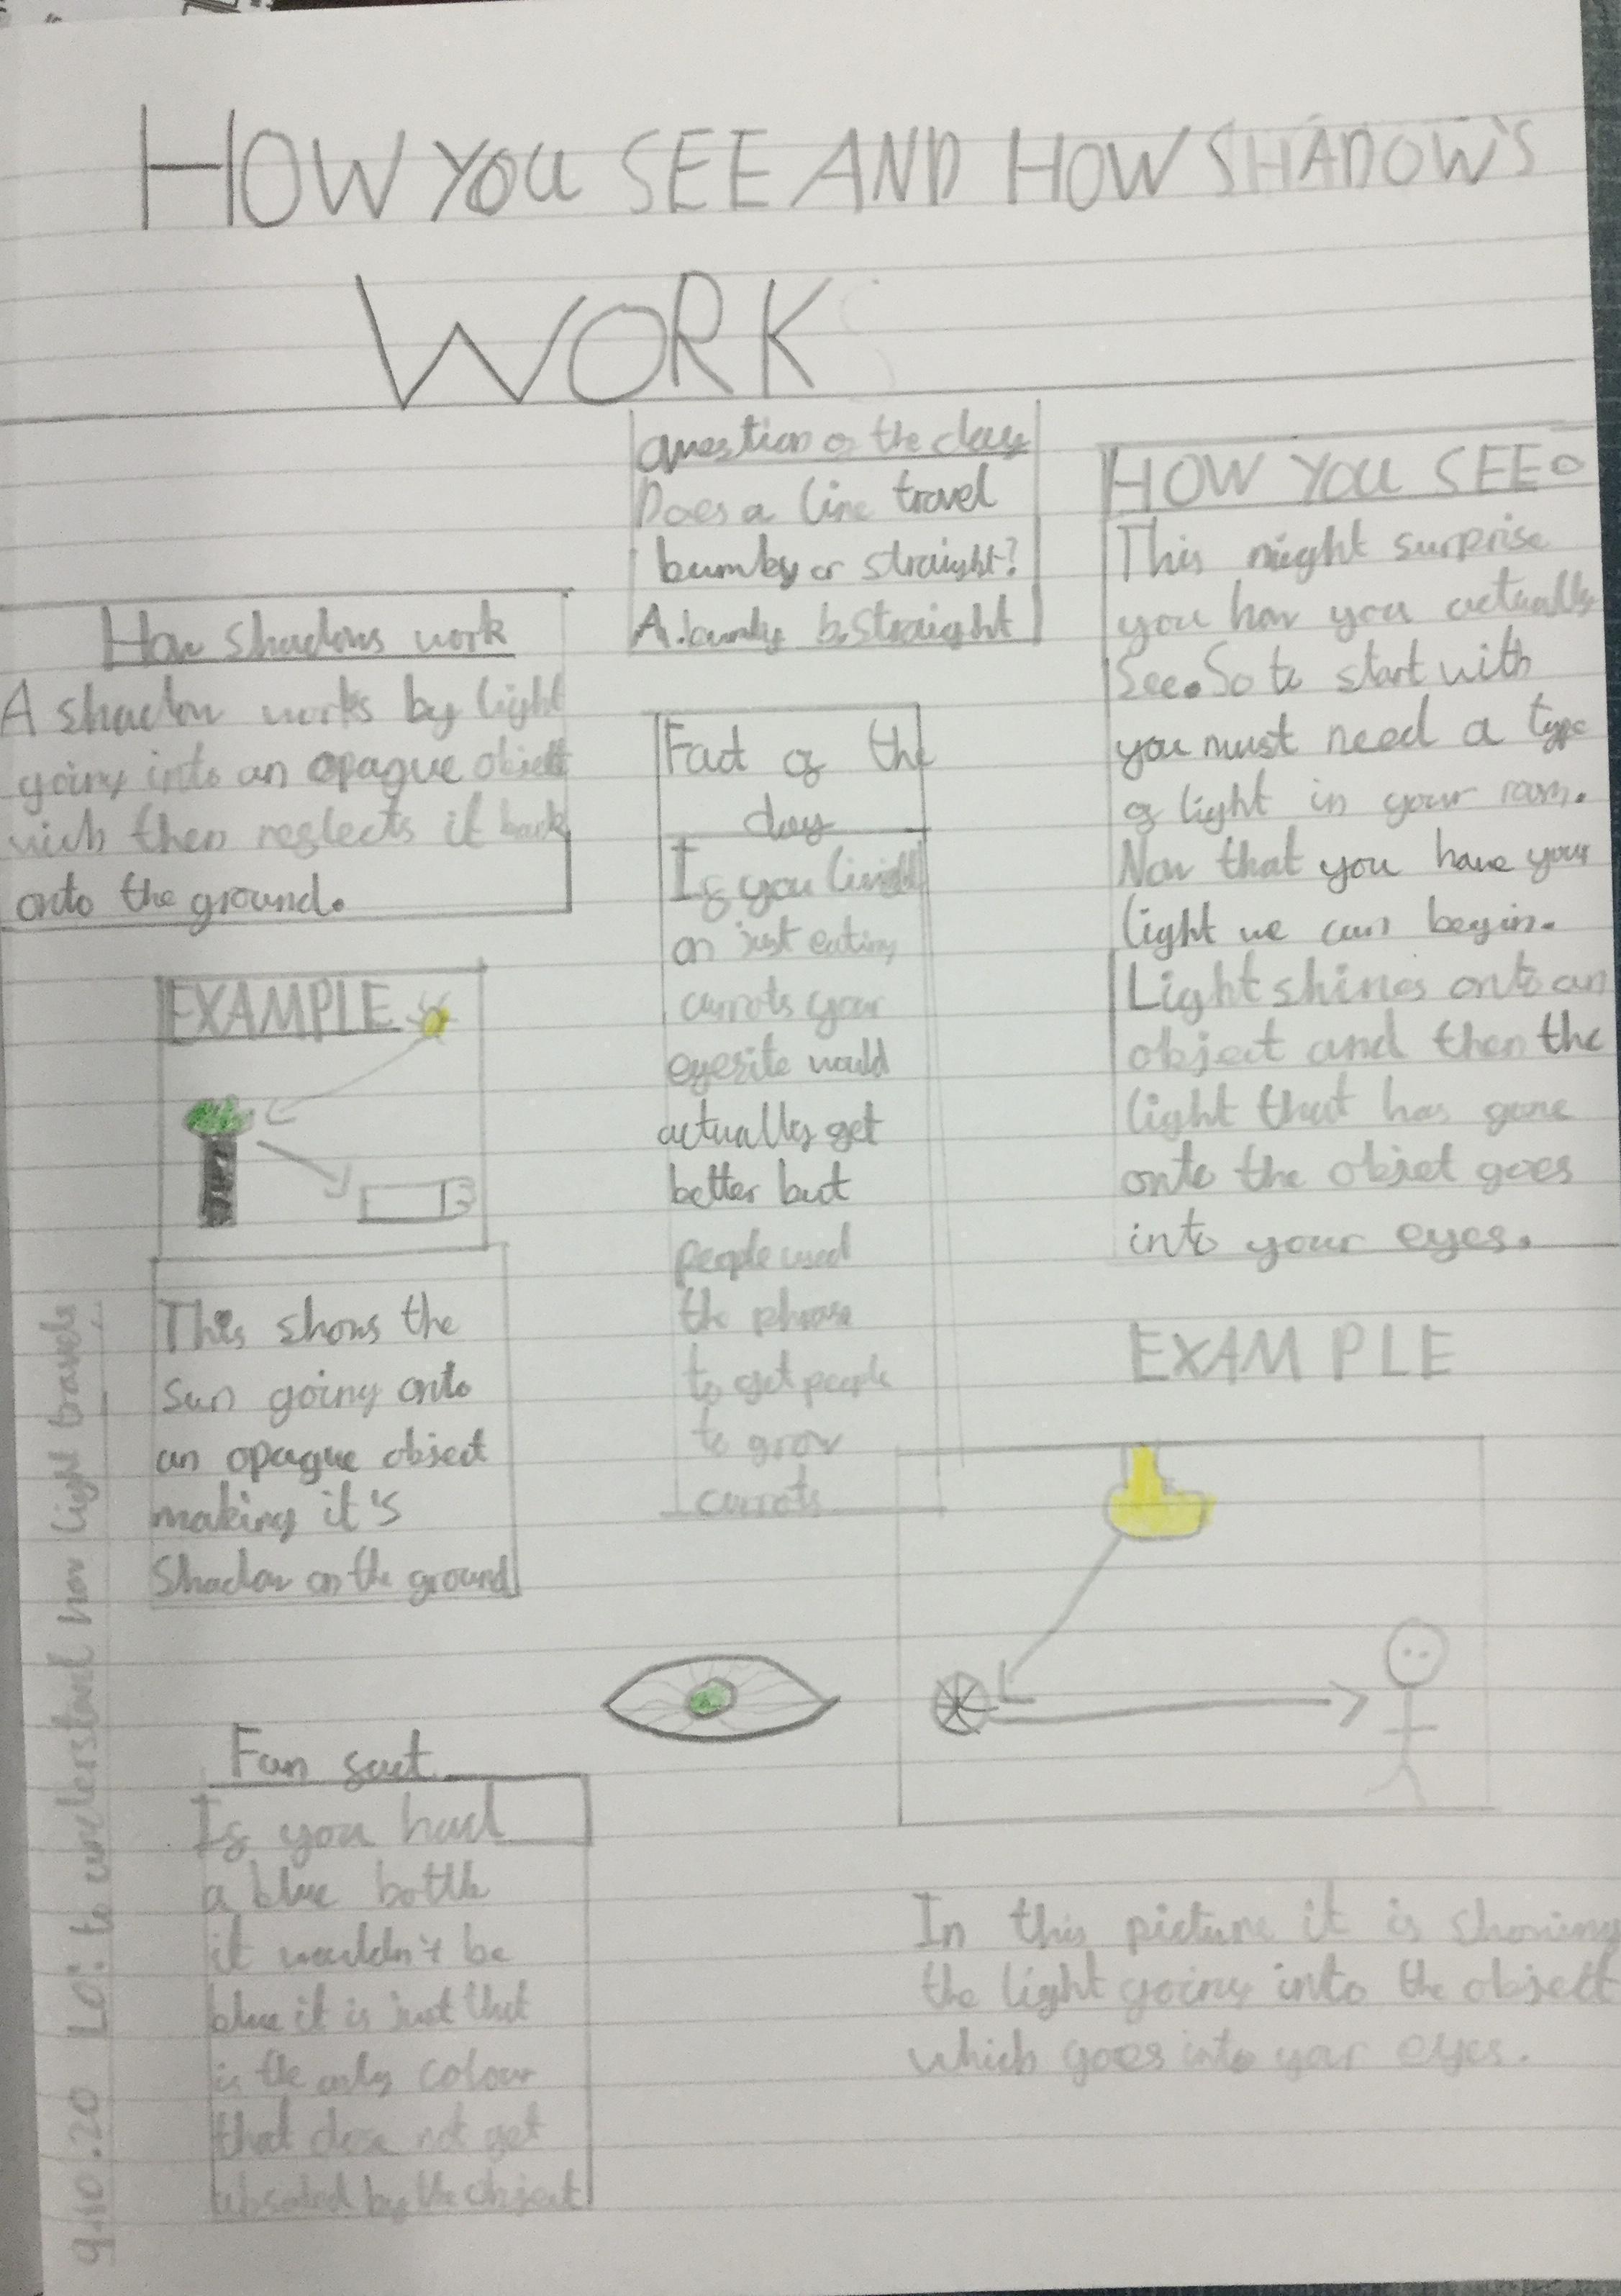 HOW YOU SEE AND HOW SHADOW'S
WORK
How shadows work
A shadow works by light
going into an opague object
wich then reflects it back
onto the ground.
EXAMPLE
This shows the
sun going onto
an opague object
making it's
Shadow on the ground
Fun fact
If you had
a blue bottle
it wouldn't be
blue it is just that
is the only colour
that dose not get
by the object
question of the day
Does a line travel
bumby or straight?
A. bumby b. Straight
Fact of the
day
If you
on just eating
carrots your
eyesite would
actually get
better but
people used
the phrase
to get people
to grow
carrots
HOW YOU SEE
This might surprise
you how you actually
See. So to start with
you must need a type
of light in your room.
Now that you have your
light we can begin.
Light shines onto an
object and then the
light that has gone
onto the objet goes
into your eyes.
EXAMPLE
In this picture it is showing
the light going into the object
which goes into your eyes.
9.10.20 LO: to understand how light travels